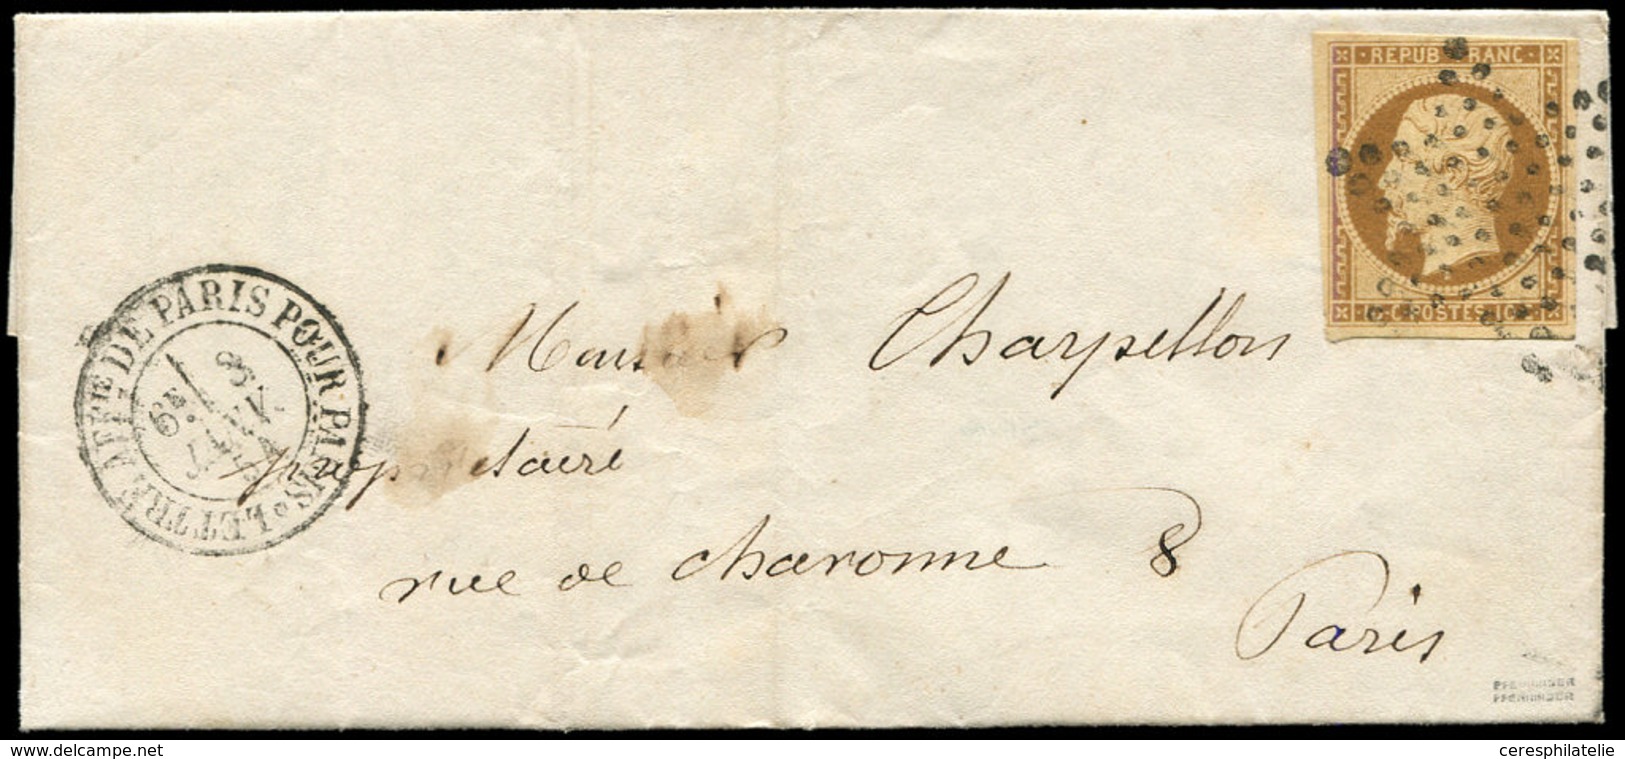 REPUB FRANC
10 C POSTES 10 C
LETTRE AFF.IE DE PARIS POUR PARIS
6E
8
JANV.
Monsieur Charpellon
propriétairé
rue de charonne 8
Paris
PFENNINGER
PFENNINGER
www.delcampe.net
ceresphilatelie